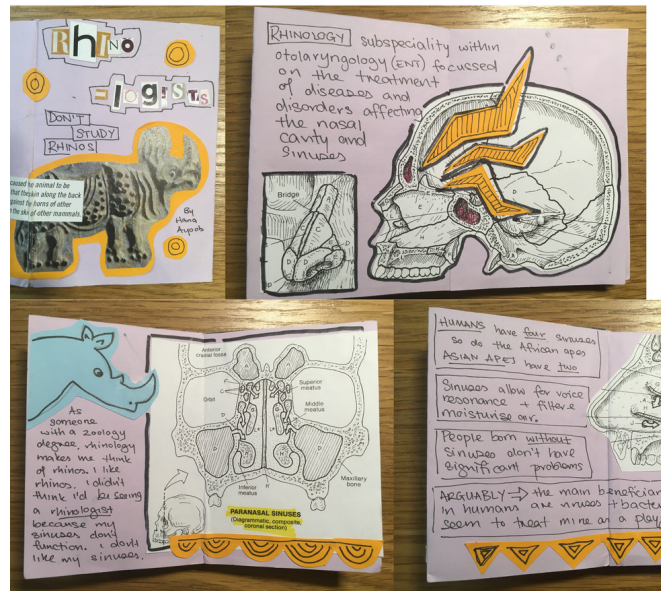 Rhino
ologists
DON'T
STUDY
RHINOS
caused he animal to be
that the skin along the back
against by horns of other
n the skin of other mammals.
By
Hana
Ayoob
RHINOLOGY subspeciality within
otolaryngology (ENT) focussed
on the treatment
of diseases and
disorders affecting
the nasal
cavity and
sinuses
Bridge
As
someone
with a zoology
degree, rhinology
makes me think
of rhinos. I like
rhinos. I didn't
think I'd be seeing
a rhinologist
because my
sinuses don't
function. I don't
like my sinuses.
Anterior
cranial fossa
Orbit
Superior
meatus
Middle
meatus
Inferior
meatus
Maxillary
bone
PARANASAL SINUSES
(Diagrammatic, composite,
coronal section)
HUMANS have four sinuses
so do the African apes
ASIAN APES have two
Sinuses allow for voice
resonance + filter +
moisturise air.
People born without
sinuses don't have
significant problems
ARGUABLY → the main beneficiar
in humans are viruses + bacte
seem to treat mine as a play